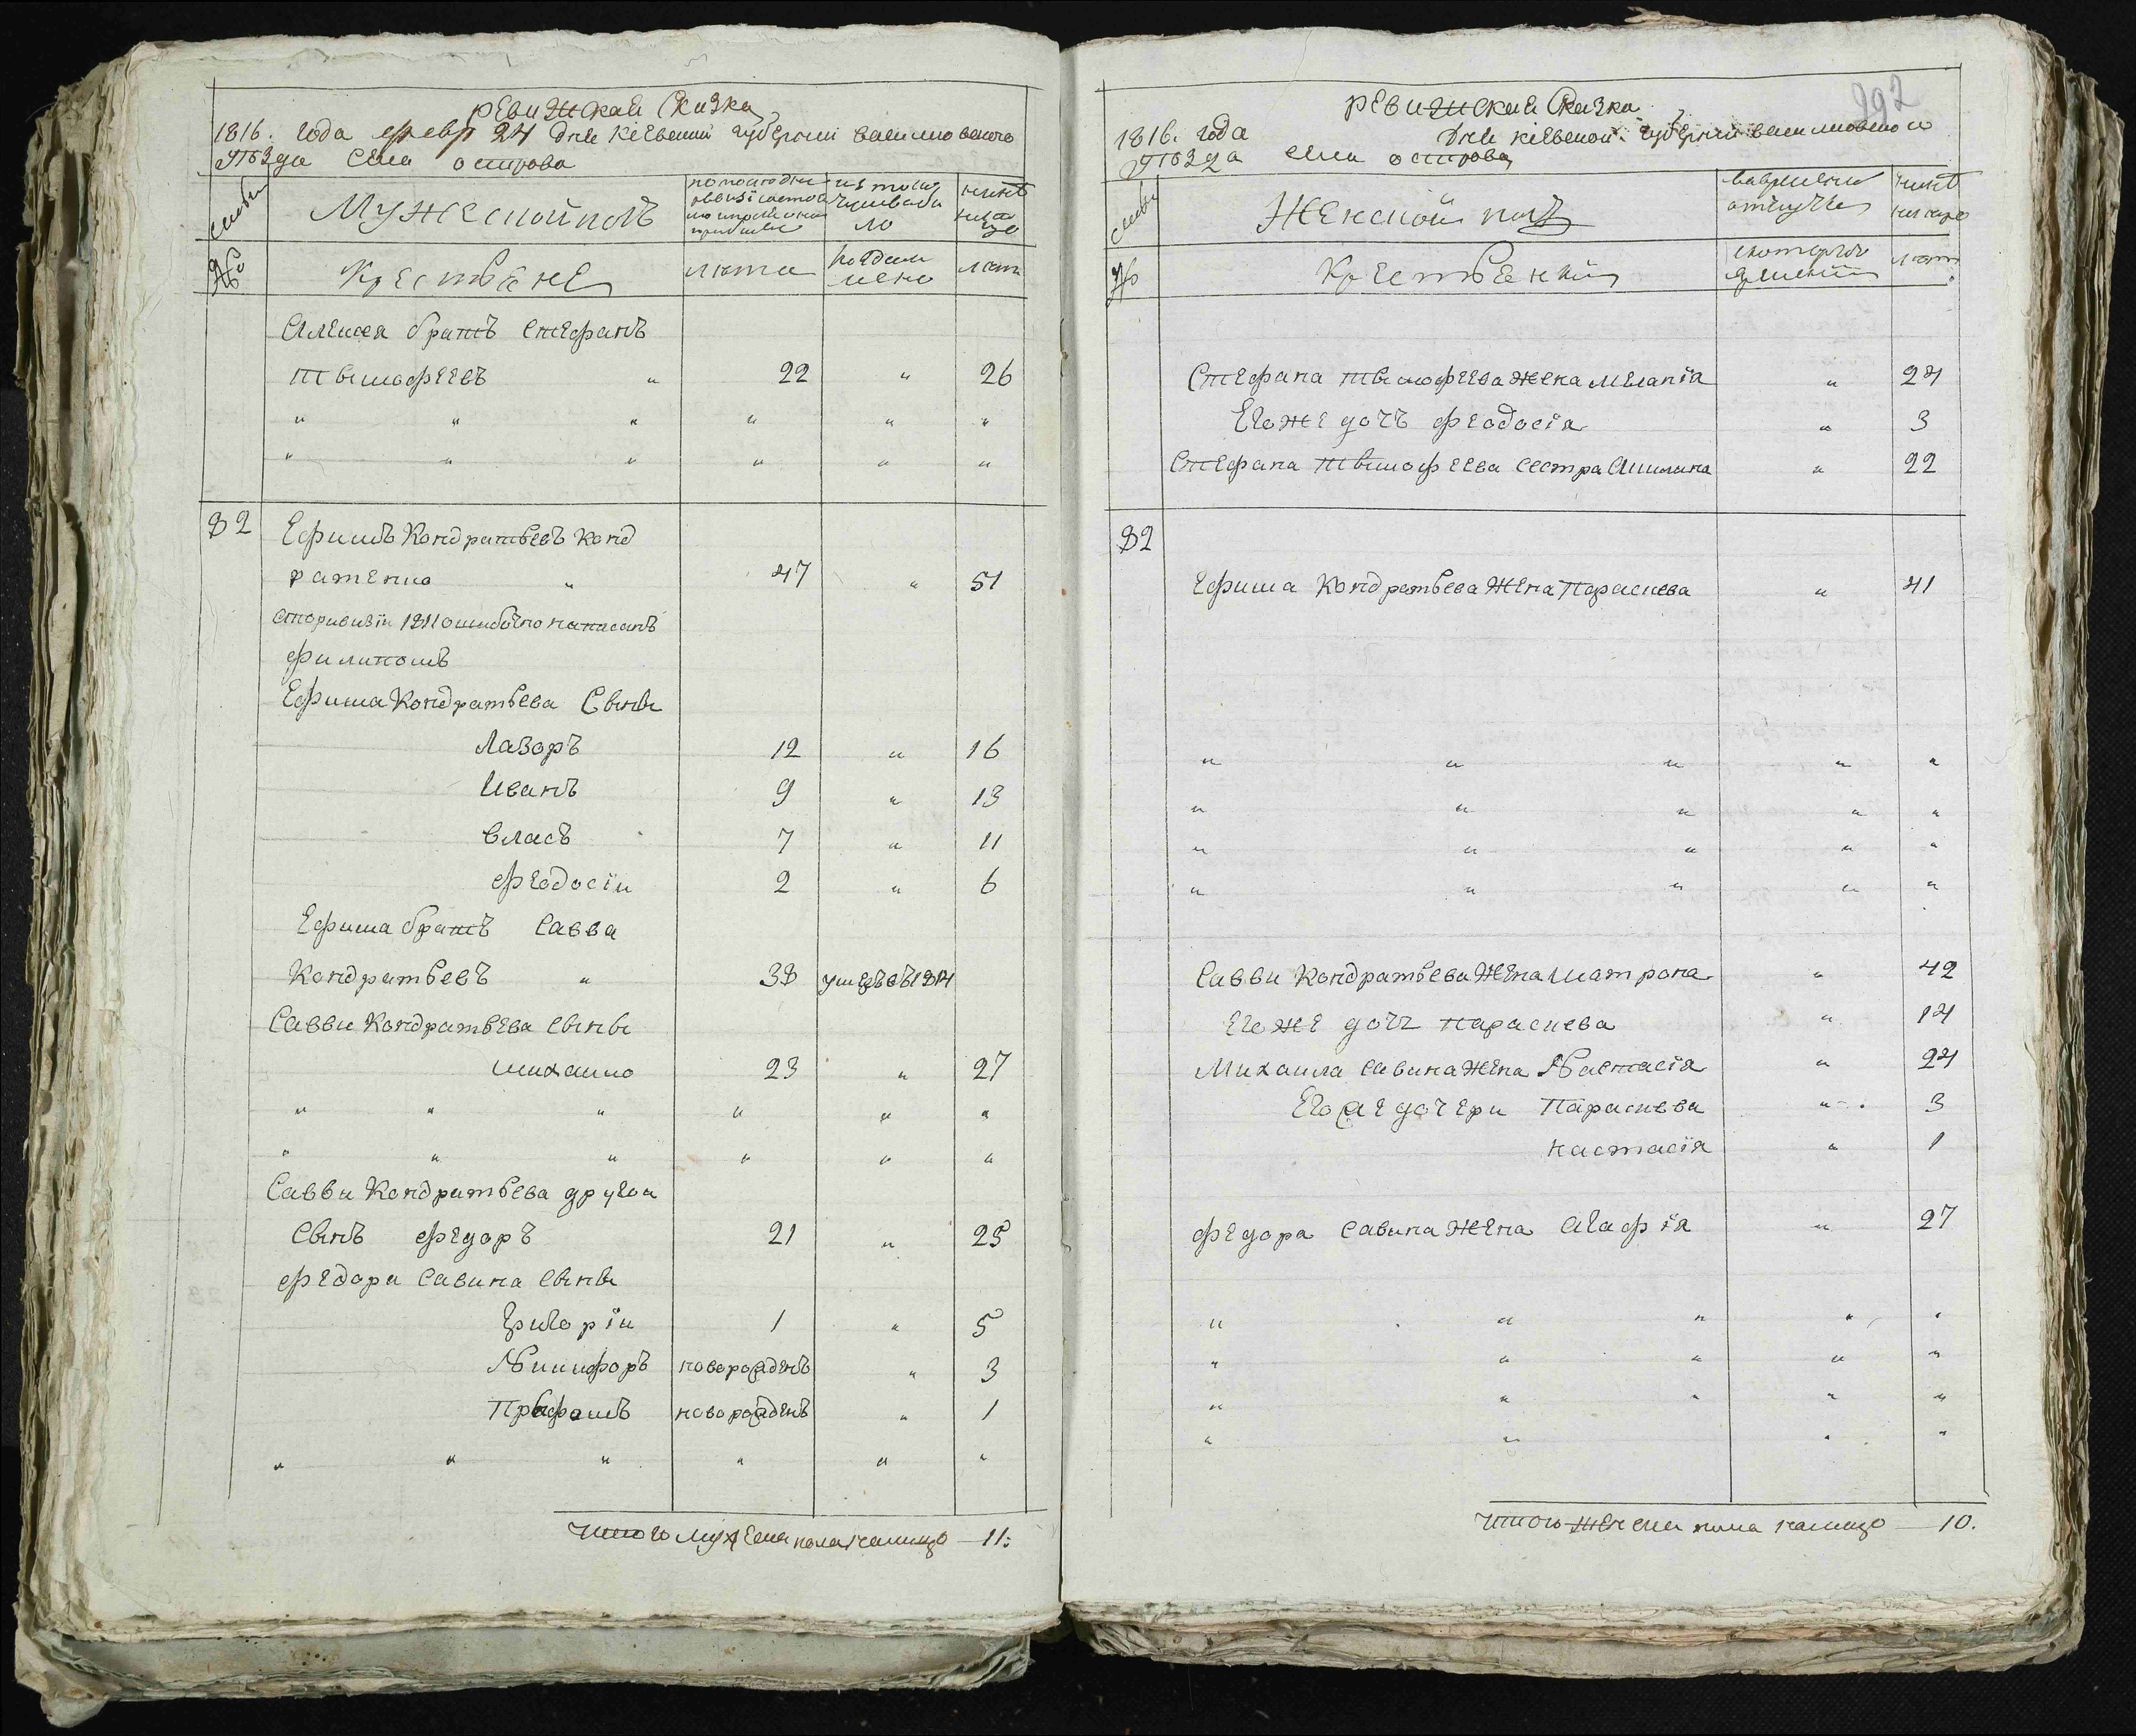 ревижская сказка
1816. года февр 24 дня киевской губернии василковского
уѣзда села острова
семьи
Мужеской полъ
по последней ревизіи состояло и после оной прибыло
из того числа выбыло
нынѣ на лицо
№
Крестьяне
лѣта
когда именно
лѣта
Алексея братъ Стефанъ
тымофеевъ " 22 " 26
" " " " " "
" " " " " "
82 Ефимъ Кондратьевъ Конд
ратенко " 47 " 51
Споривизіи 1811 ошибочно написанъ
филипомъ
Ефима Кондратьева Сыны
Лазоръ 12 " 16
Иванъ 9 " 13
власъ 7 " 11
феодосіи 2 " 6
Ефима братъ Савва
Кондратьевъ " 38 умеръ въ 1814
Саввы Кондратьева сыны
михаило 23 " 27
" " " " " "
" " " " " "
Саввы Кондратьева другои
Сынъ федоръ 21 " 25
федора Савина Сыны
Григоріи 1 " 5
Никифоръ новорожденъ " 3
Прафомъ новорожденъ " 1
" " " " " "
Итого мужеска пола налицо — 11:
292
ревижская сказка
1816. года дня киевской губернии василковского
уѣзда села острова
семьи
Женской полъ
во временной отлучке
нынѣ на лицо
№
Крестьянки
с которого времени
лѣта
Стефана тымофеева жена меланіа " 24
Его же дочъ феодосіа " 3
Стефана тымофеева сестра Акилина " 22
82
Ефима Кондратьева жена Параскева " 41
" " " " "
" " " " "
" " " " "
" " " " "
Саввы Кондратьева жена матрона " 42
Его же дочъ параскева " 14
Михаила Савина жена Настасіа " 24
Его же дочери Параскева " 3
настасіа " 1
федора Савина жена Агафіа " 27
" " " " "
" " " " "
" " " " "
" " " "
Итого женска пола налицо — 10.